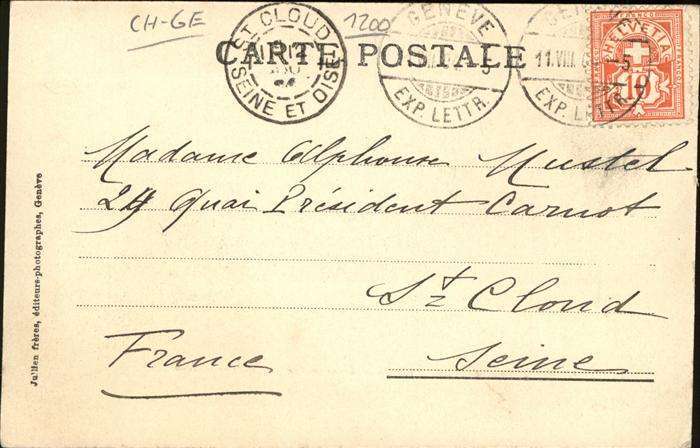 CH-GE
1200
ST CLOUD
SEINE ET OISE
GENÈVE
EXP. LETTR.
11.VIII
EXP. LETTR.
HELVETIA
FRANCO
10
CARTE POSTALE
Madame Alphonse Mustel
24 Quai Président Carnot
St Cloud
Seine
France
Jullien frères, éditeurs-photographes, Genève